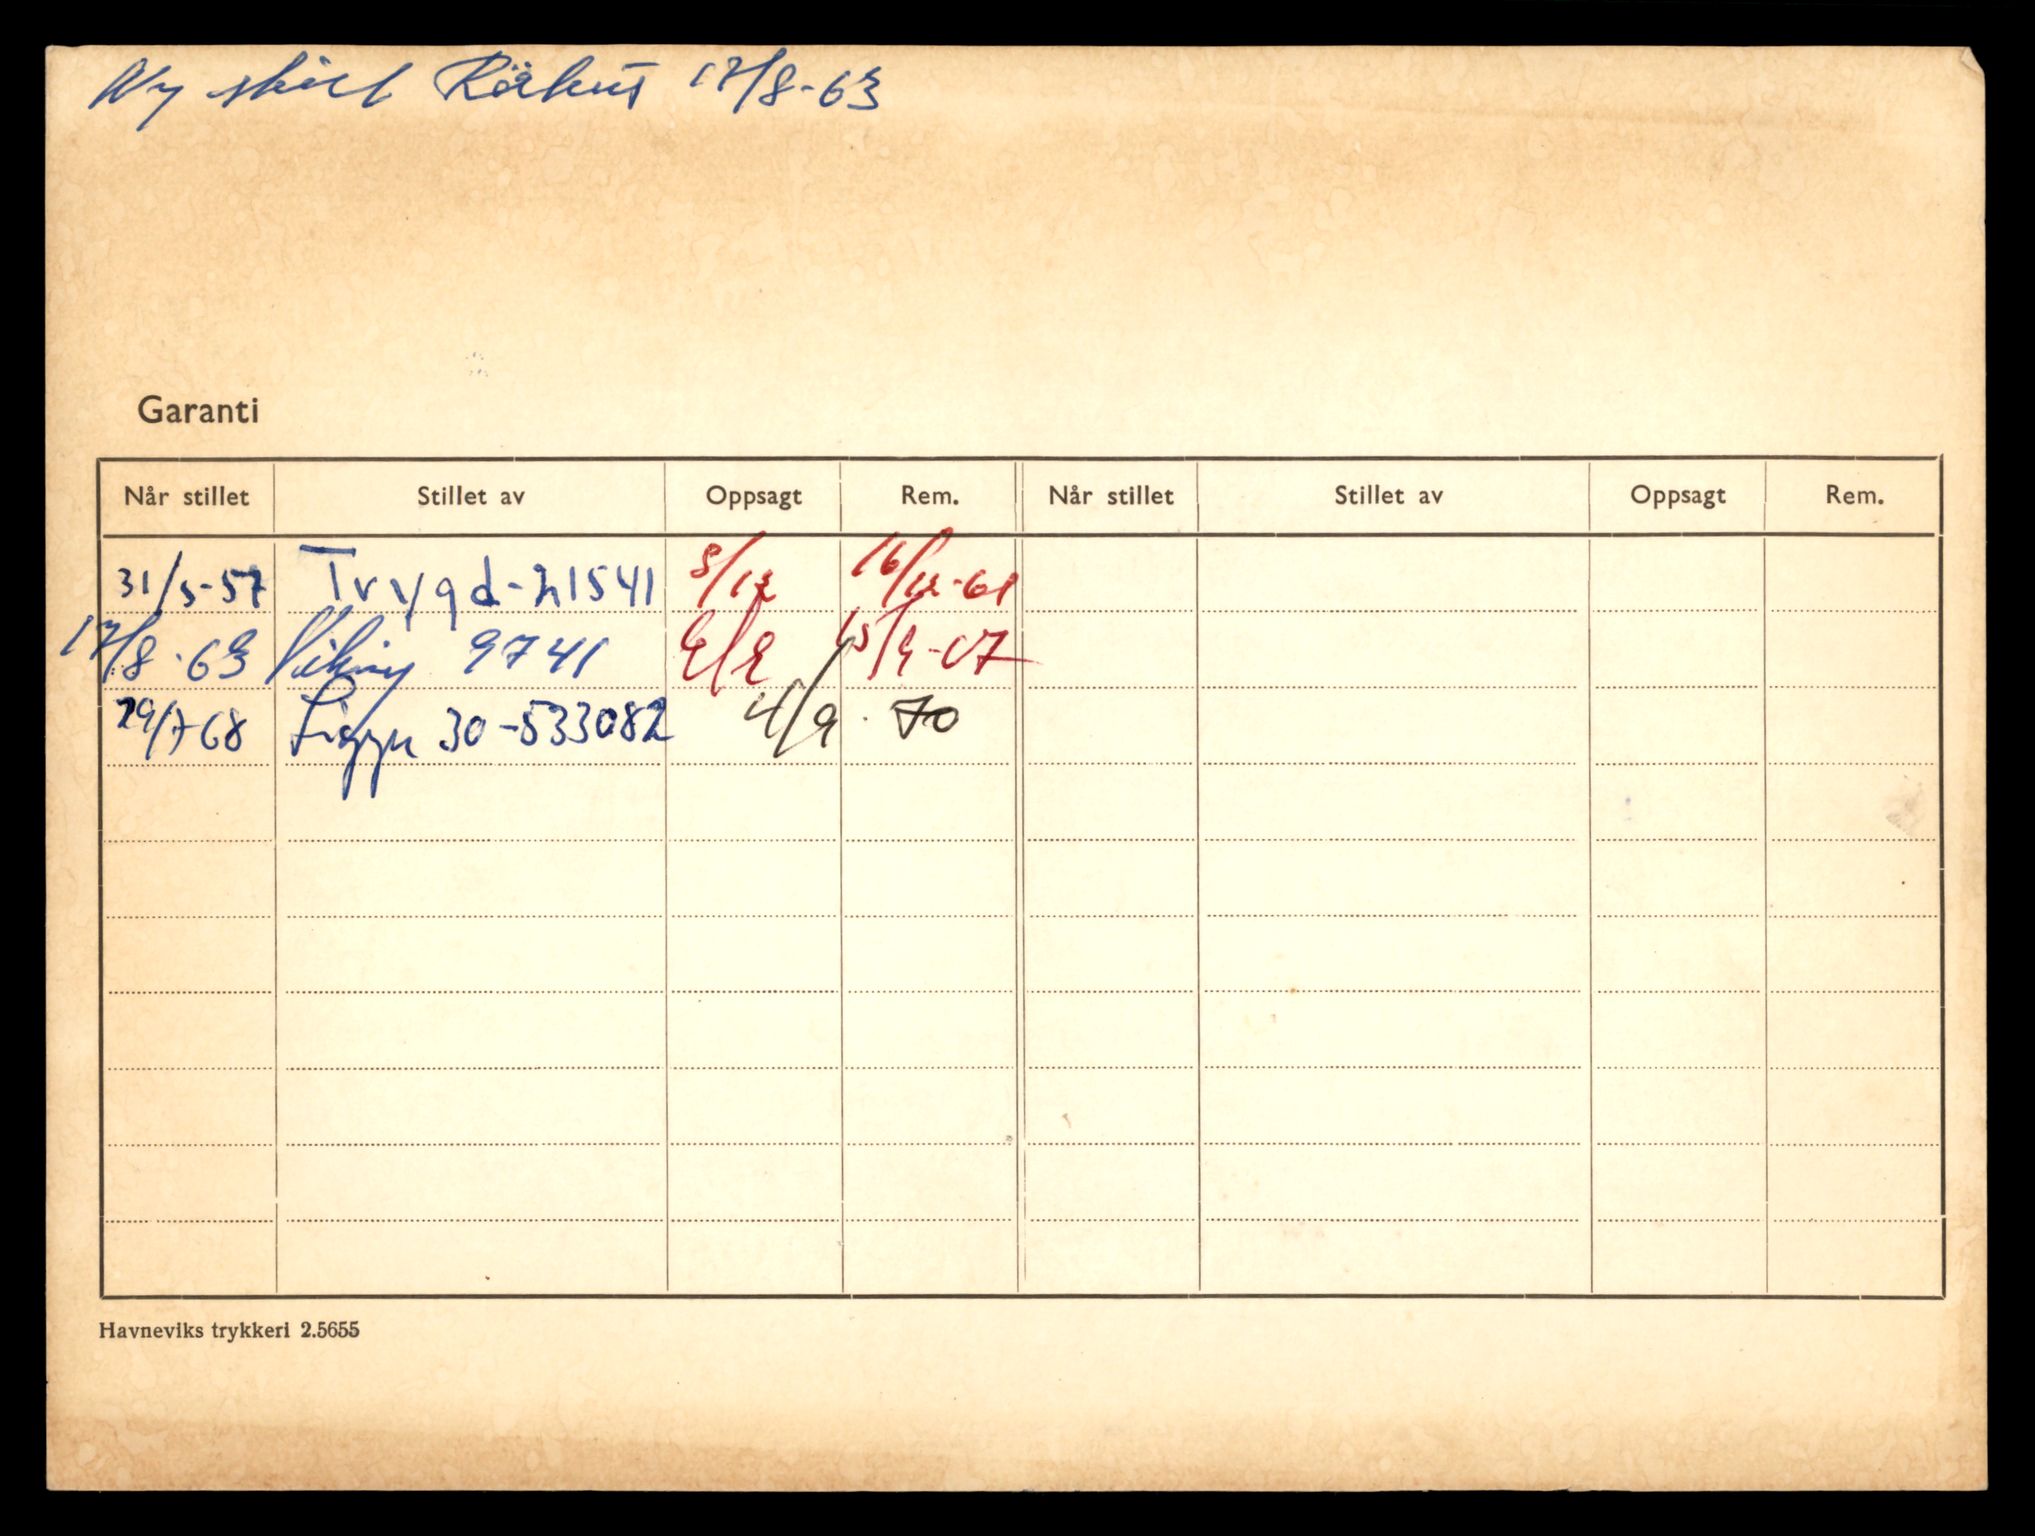 Ny skilt 17/8-63
Garanti
Når stillet Stillet av Oppsagt Rem. Når stillet Stillet av Oppsagt Rem.
31/5-57 Trygd-21541 5/12 16/12-61
17/8-63 Viking 9741 15/9-67
29/7 68 30-533082 4/9. 70
Havneviks trykkeri 2.5655